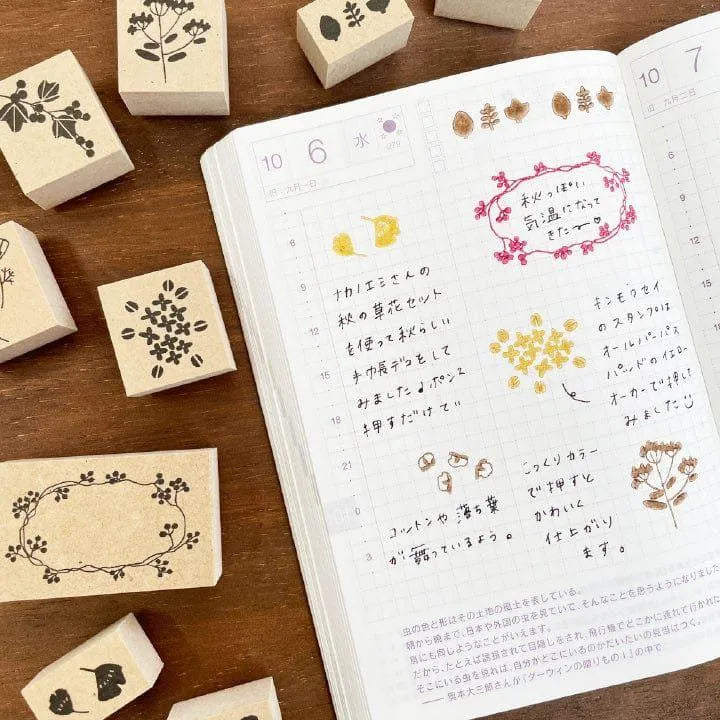 10
6
水
279
旧 九月一日
10
7
旧 九月二日
秋っぽい
気温になって
きた〜♡
6
9
12
15
18
21
0
3
ナカノエミさんの
秋の草花セット
を使って秋らしい
手帳デコをして
みました♩ポンと
押すだけで
キンモクセイ
のスタンプは
オールパーパス
パレッドのイエロー
オーカーで押して
みました
コットンや落ち葉
が舞っているよう。
こっくりカラー
で押すと
かわいく
仕上がり
ます。
6
9
12
虫の色と形はその土地の風土を表している。
朝から晩まで、日本や外国の虫を見ていて、そんなことを思うようになりました
鳥にも同じようなことがいえます。
だから、たとえば誘拐されて目隠しをされ、飛行機でどこかに連れて行かれた
そこにいる虫を見れば、自分がどこにいるのかだいたいの見当はつく。
── 奥本大三郎さんが『ダーウィンの贈りもの I 』の中で